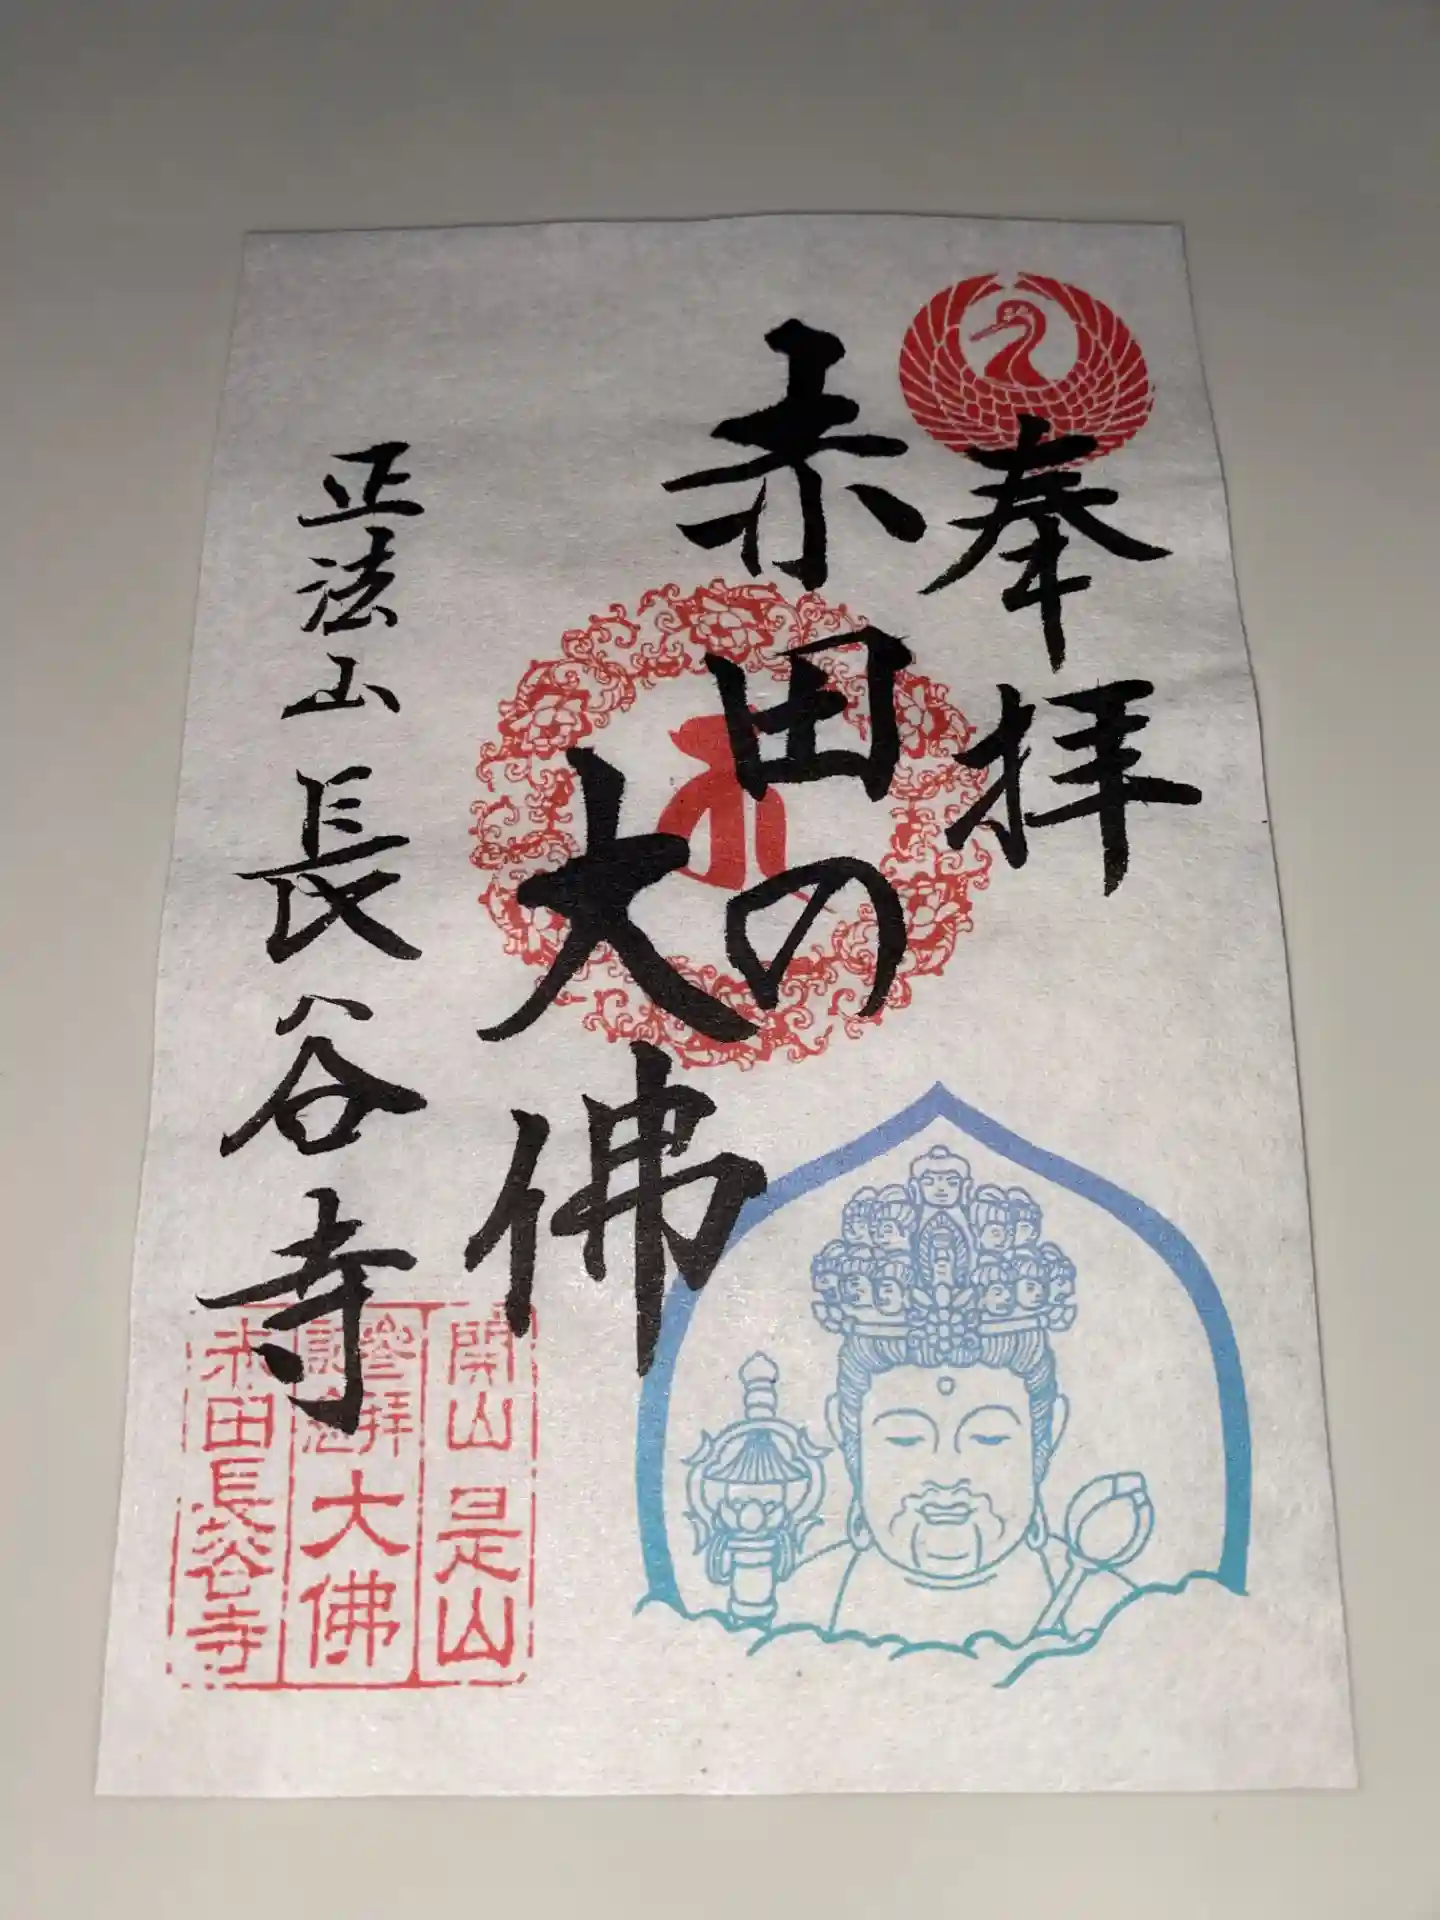 奉拝
赤田の
大佛
正法山長谷寺
開山 是山
參拝
記念
大佛
赤田長谷寺